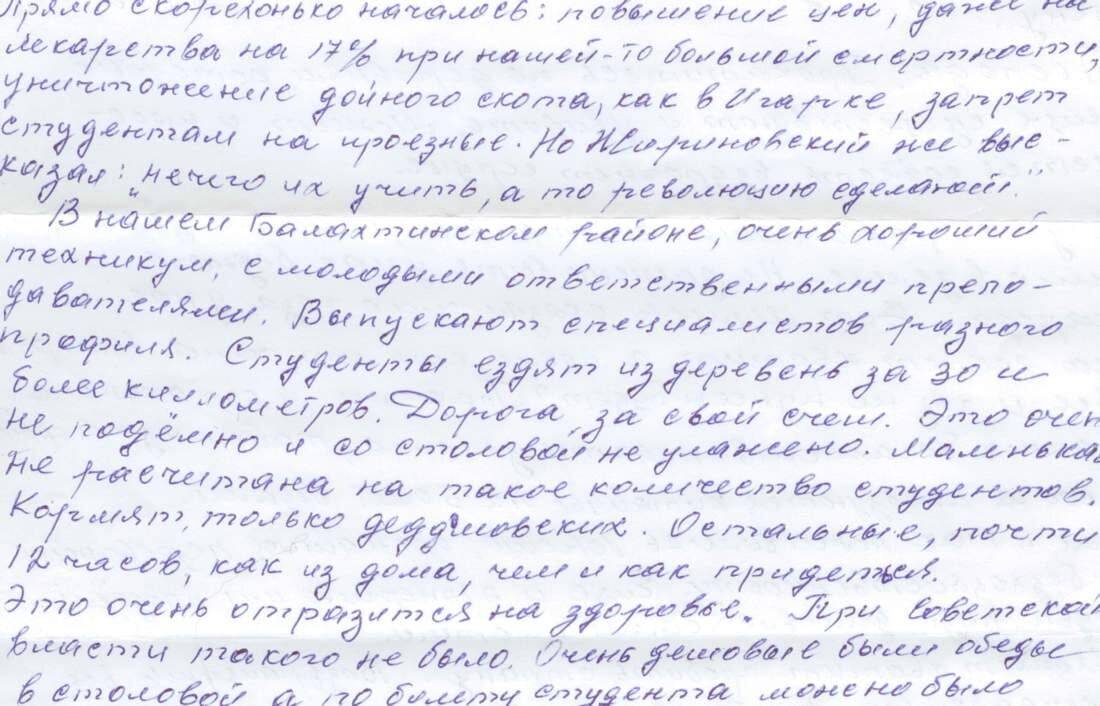 прямо скорехонько началось: повышение цен, даже на
лекарства на 17% при нашей-то большой смертности,
уничтожение дойного скота, как в Игарке, запрет
студентам на проезные. Но Жириновский же выс-
казал: "нечего их учить, а то революцию сделают."
В нашем Балахтинском районе, очень хороший
техникум, с молодыми ответственными препо-
давателями. Выпускают специалистов разного
профиля. Студенты ездят из деревень за 30 и
более километров. Дорога, за свой счет. Это очен
не подёмно и со столовой не улажено. Маленькая
не расчитана на такое количество студентов.
Кормят, только детдомовских. Остальные, почти
12 часов, как из дома, чем и как придеться.
Это очень отразится на здоровье. При советской
власти такого не было. Очень дешовые были обеды
в столовой а по билету студента можно было